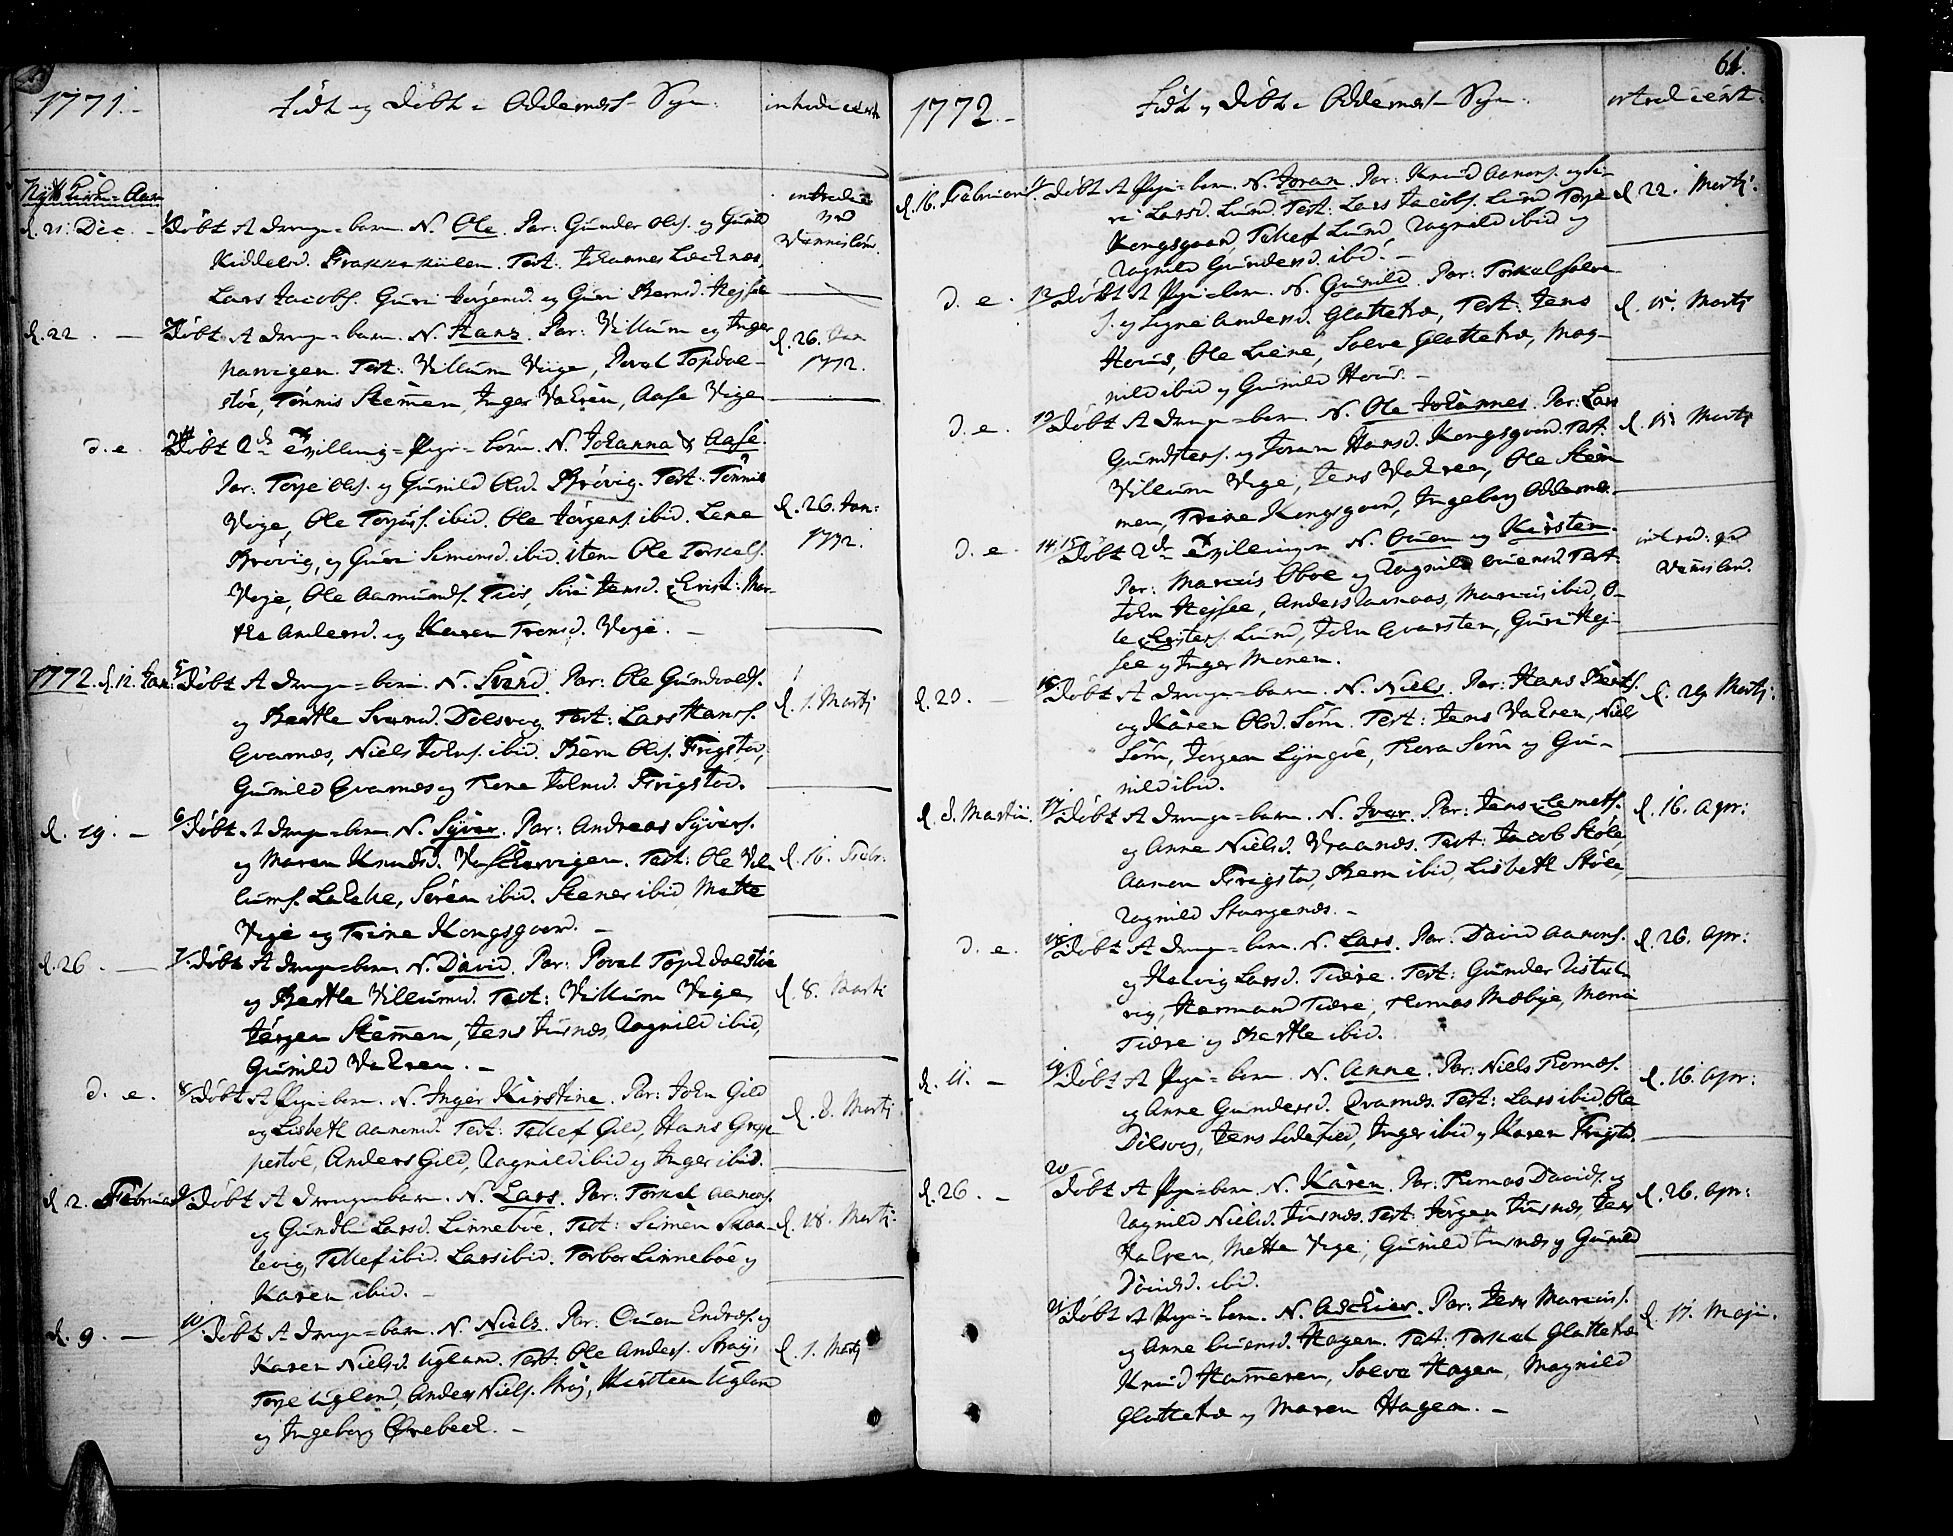 1771.
Født og Døbt - Oddernes Sogn.
introducert
Nytt Kirke-Aar
d. 21. Dec. - 1. Døbt et drenge-barn. N. Ole. Par: Gunder Ols. og Gunild
Kiddelsd. Test: Johannes
Lars Jacobs. Guri Jørgensd. og Guri Berntsd.
introd.
d. 22. - 2. Døbt et drenge-barn. N. Hans. Par: Villum og Inger
Narvigen. Test: Villum Vige, Povel Topdal-
støe, Tønnis Stemmen, Inger Valøen, Aase Vige
d. 26. Jan
1772.
d. e. 3. 4. Døbt 2de Tvilling-Pige-børn. N. Johanna & Aase.
Par: Torje Ols. og Gunild Olsd. Brøvig. Test: Tønnis
Vege, Ole Torjus. ibid. Ole Jørgens. ibid. Lene
Brøvig, og Guri Simonsd. ibid. item Ole Torkels.
Vege, Ole Aamunds. Siri Jensd. Mar-
the Andersd. og Karen Tronsd. Vege. -
d. 26. Jan:
1772.
1772. d. 12. Jan: 5. Døbt et drenge-barn. N. Svend. Par: Ole Gundvalds.
og Berthe Svensd. Dølsvog. Test: Lars Hans.
Qvarnes, Niels Johns. ibid. Bern Ols. Frigstad,
Gunild Qvarnes og Thone Johnsd. Frigstad.
d. 1. Martj
d. 19. - 6. Døbt et drenge-barn. N. Syver. Par: Andreas Syvers.
og Maren Knudsd. Test: Ole Vil-
lums. Søren ibid. Stener ibid. Mette
Vege og Trine Kongsgaard. -
d. 16. Febr:
d. 26. - 7. Døbt et drenge-barn. N. David. Par: Povel Topdalstøe
og Berthe Villumsd. Test: Villum Vige,
Jørgen Stemmen, Jens Justnes, Ragnild ibid,
Gunild Valøen. -
d. 8. Martj
d. e. 8. Døbt et Pige-barn. N. Inger Kirstine. Par: John Gild
og Lisbeth Aanensd. Test: Tellef Gild, Hans Grep-
pestøe, Anders Gild, Ragnild ibid og Inger ibid.
d. 8. Martj
d. 2. Februar 9. Døbt et drenge-barn. N. Lars. Par: Torkel Aanens.
og Gundle Larsd. Linnebøe. Test: Simen Skaa-
levig, Tellef ibid. Lars ibid. Torbor Linnebøe og
Karen ibid. -
d. 18. Martj.
d. 9. - 10. Døbt et drenge-barn. N. Niels. Par: Ouen Endres. og
Karen Nielsd. Ugland. Test: Ole Anders. Straj,
Torje Ugland, Anders Niels. Straj, Kirsten Ugland
og Ingeborg Ørebeck. -
d. 1. Martj
61.
1772.
Født og Døbt - Oddernes Sogn.
introducert.
d. 16. Februarii 11. Døbt et Pige-barn. N. Joran. Par: Knud Aanons. og Si-
ri Larsd. Lund. Test: Lars Jacobs. Lund Torje
Kongsgaard, Tellef Lund, Ragnild ibid og
Ragnild Gundersd. ibid. -
d. 22. Martj.
d. e. 12. Døbt et Pige-barn. N. Gunild. Par: Torkel Salve
s. og Signe Andersd. Glattetræ, Test: Jens
Hous, Ole Liene, Salve Glattetræ, Mag-
nild ibid og Gunild Hous. -
d. 15. Martj
d. e. 13. Døbt et drenge-barn. N. Ole Johannes. Par: Lars
Gundsters. og Joran Hansd. Kongsgaard. Test:
Villum Vege, Jens Valøen, Ole Stem-
men, Trine Kongsgaard, Ingeborg Oddernes.
d. 15. Martj
d. e. 14. 15. Døbt 2de Tvillinger N. Ouen og Kirsten.
Par: Marcus Oboe og Ragnild Ouensd. Test:
John Anders Marcus ibid, O-
le Lund, John Qvarsten, Guri
og Inger Monen.
introd:
d. 23. - 16. Døbt et drenge-barn. N. Niels. Par: Hans Berts.
og Karen Olsd. Søm. Test: Jens Valøen, Niels
Søm, Jørgen Lyngøe, Thora Søm og Gu-
nild ibid.
d. 29 Martj.
d. 8. Martii. 17. Døbt et drenge-barn. N. Iver. Par: Jens Clemets.
og Anne Nielsd. Vraanes. Test: Jacob Støle,
Aanon Frigstad, Bern ibid, Lisbeth Støle,
Ragnild Stangenes. -
d. 16. Apr:
d. e. 18. Døbt et drenge-barn. N. Lars. Par: David Aanons.
og Helvig Larsd. Tiære. Test: Gunder
vig, Herman Tiære, Thomas Mæbye, Maria
Tiære og Berthe ibid.
d. 26. Apr:
d. 11. - 19. Døbt et Pige-barn. N. Anne. Par: Niels Thomæs.
og Anne Gundersd. Qvarnes. Test: Lars ibid. Ole
Dølsvog, Jens Inger ibid og Karen Frigstad.
d. 16. Apr:
d. 26. - 20. Døbt et Pige-barn. N. Karen. Par: Thomas Davids. og
Ragnild Nielsd. Justnes. Test: Jørgen Justnes, Jens
Valøen, Mette Vege, Gunild Justnes og Gunild
Davidsd. ibid.
d. 26. Apr:
21. Døbt et Pige-barn. N. Par: Jens Marcuss.
og Anne Ouensd. Hagen. Test: Torkel Glattetræ
Knud Hammeren, Salve Hagen, Magnild
Glattetræ og Maren Hagen. -
d. 17. Maji.